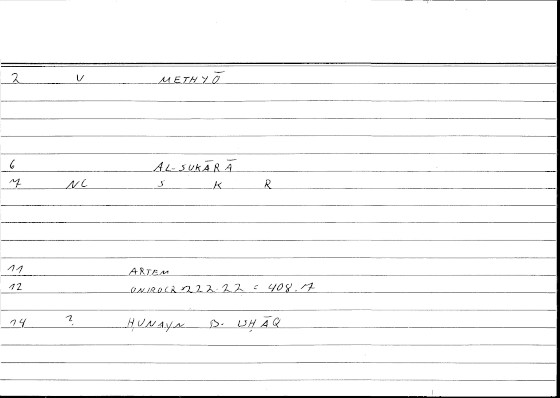 2 V METHYŌ
6 AL-SUKĀRĀ
7 NC S K R
11 ARTEM
12 ONIROCR 222.22 = 408.17
14 ? ḤUNAYN B. ISḤĀQ